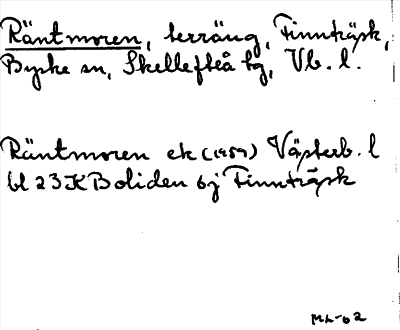 Räntmoren, terräng, Finnträsk,
Byske sn, Skellefteå tg, Vb. l.
Räntmoren ek (1959) Västerb. l
bl 23K Boliden 6j Finnträsk
ML-62